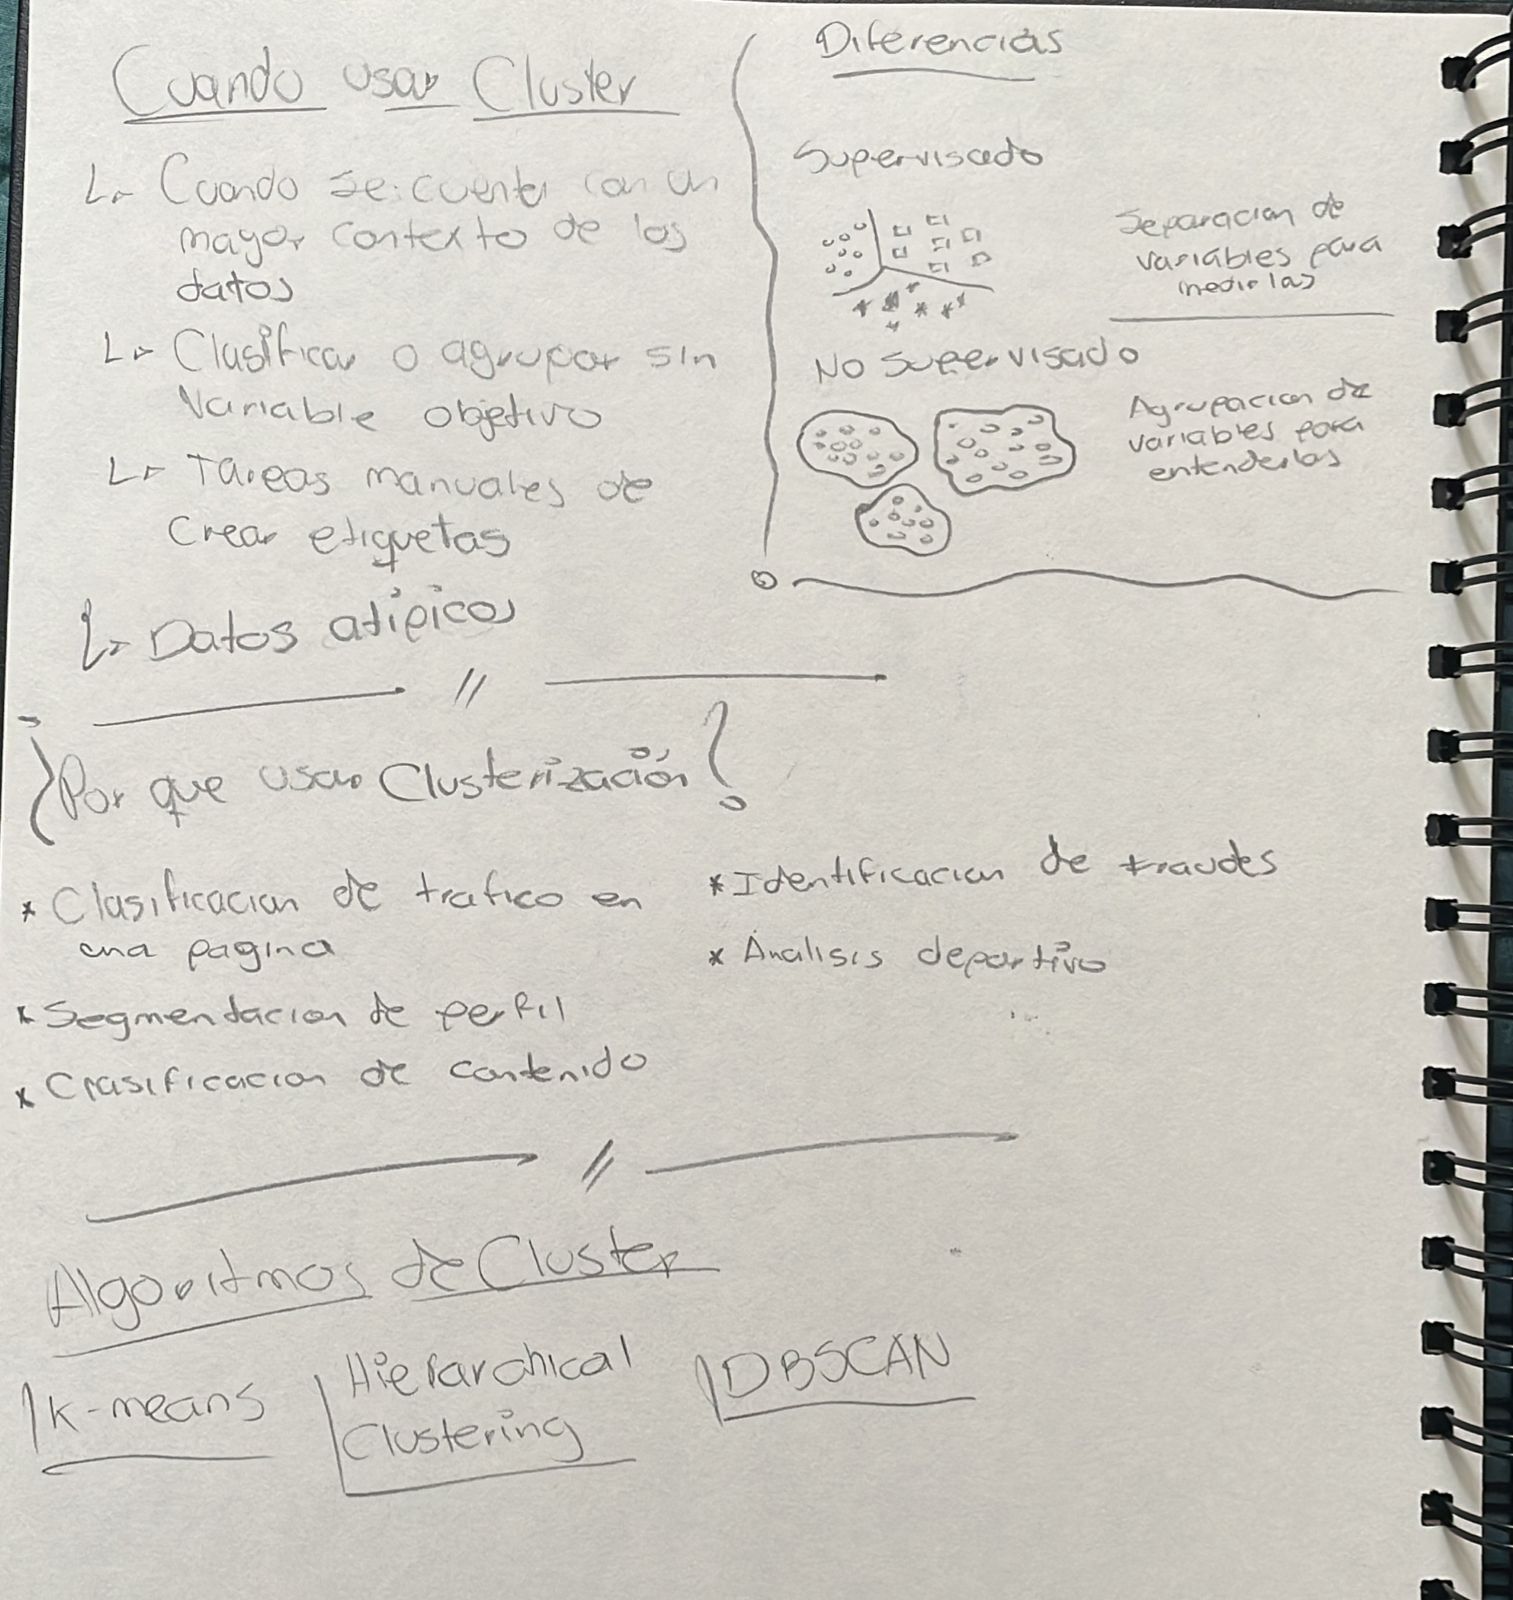 Cuando usar Cluster
Cuando se cuenta con un
mayor contexto de los
datos
Clasificar o agrupar sin
Variable objetivo
Tareas manuales de
Crear etiquetas
Datos atipicos
Diferencias
Supervisado
Separacion de
variables para
medirlas
No Supervisado
Agrupacion de
variables para
entenderlas
¿Por que usar Clusterización?
* Clasificacion de trafico en
una pagina
* Segmentacion de perfil
* Clasificacion de contenido
* Identificacion de fraudes
* Analisis deportivo
Algoritmos de Cluster
K-means
Hierarchical
Clustering
DBSCAN